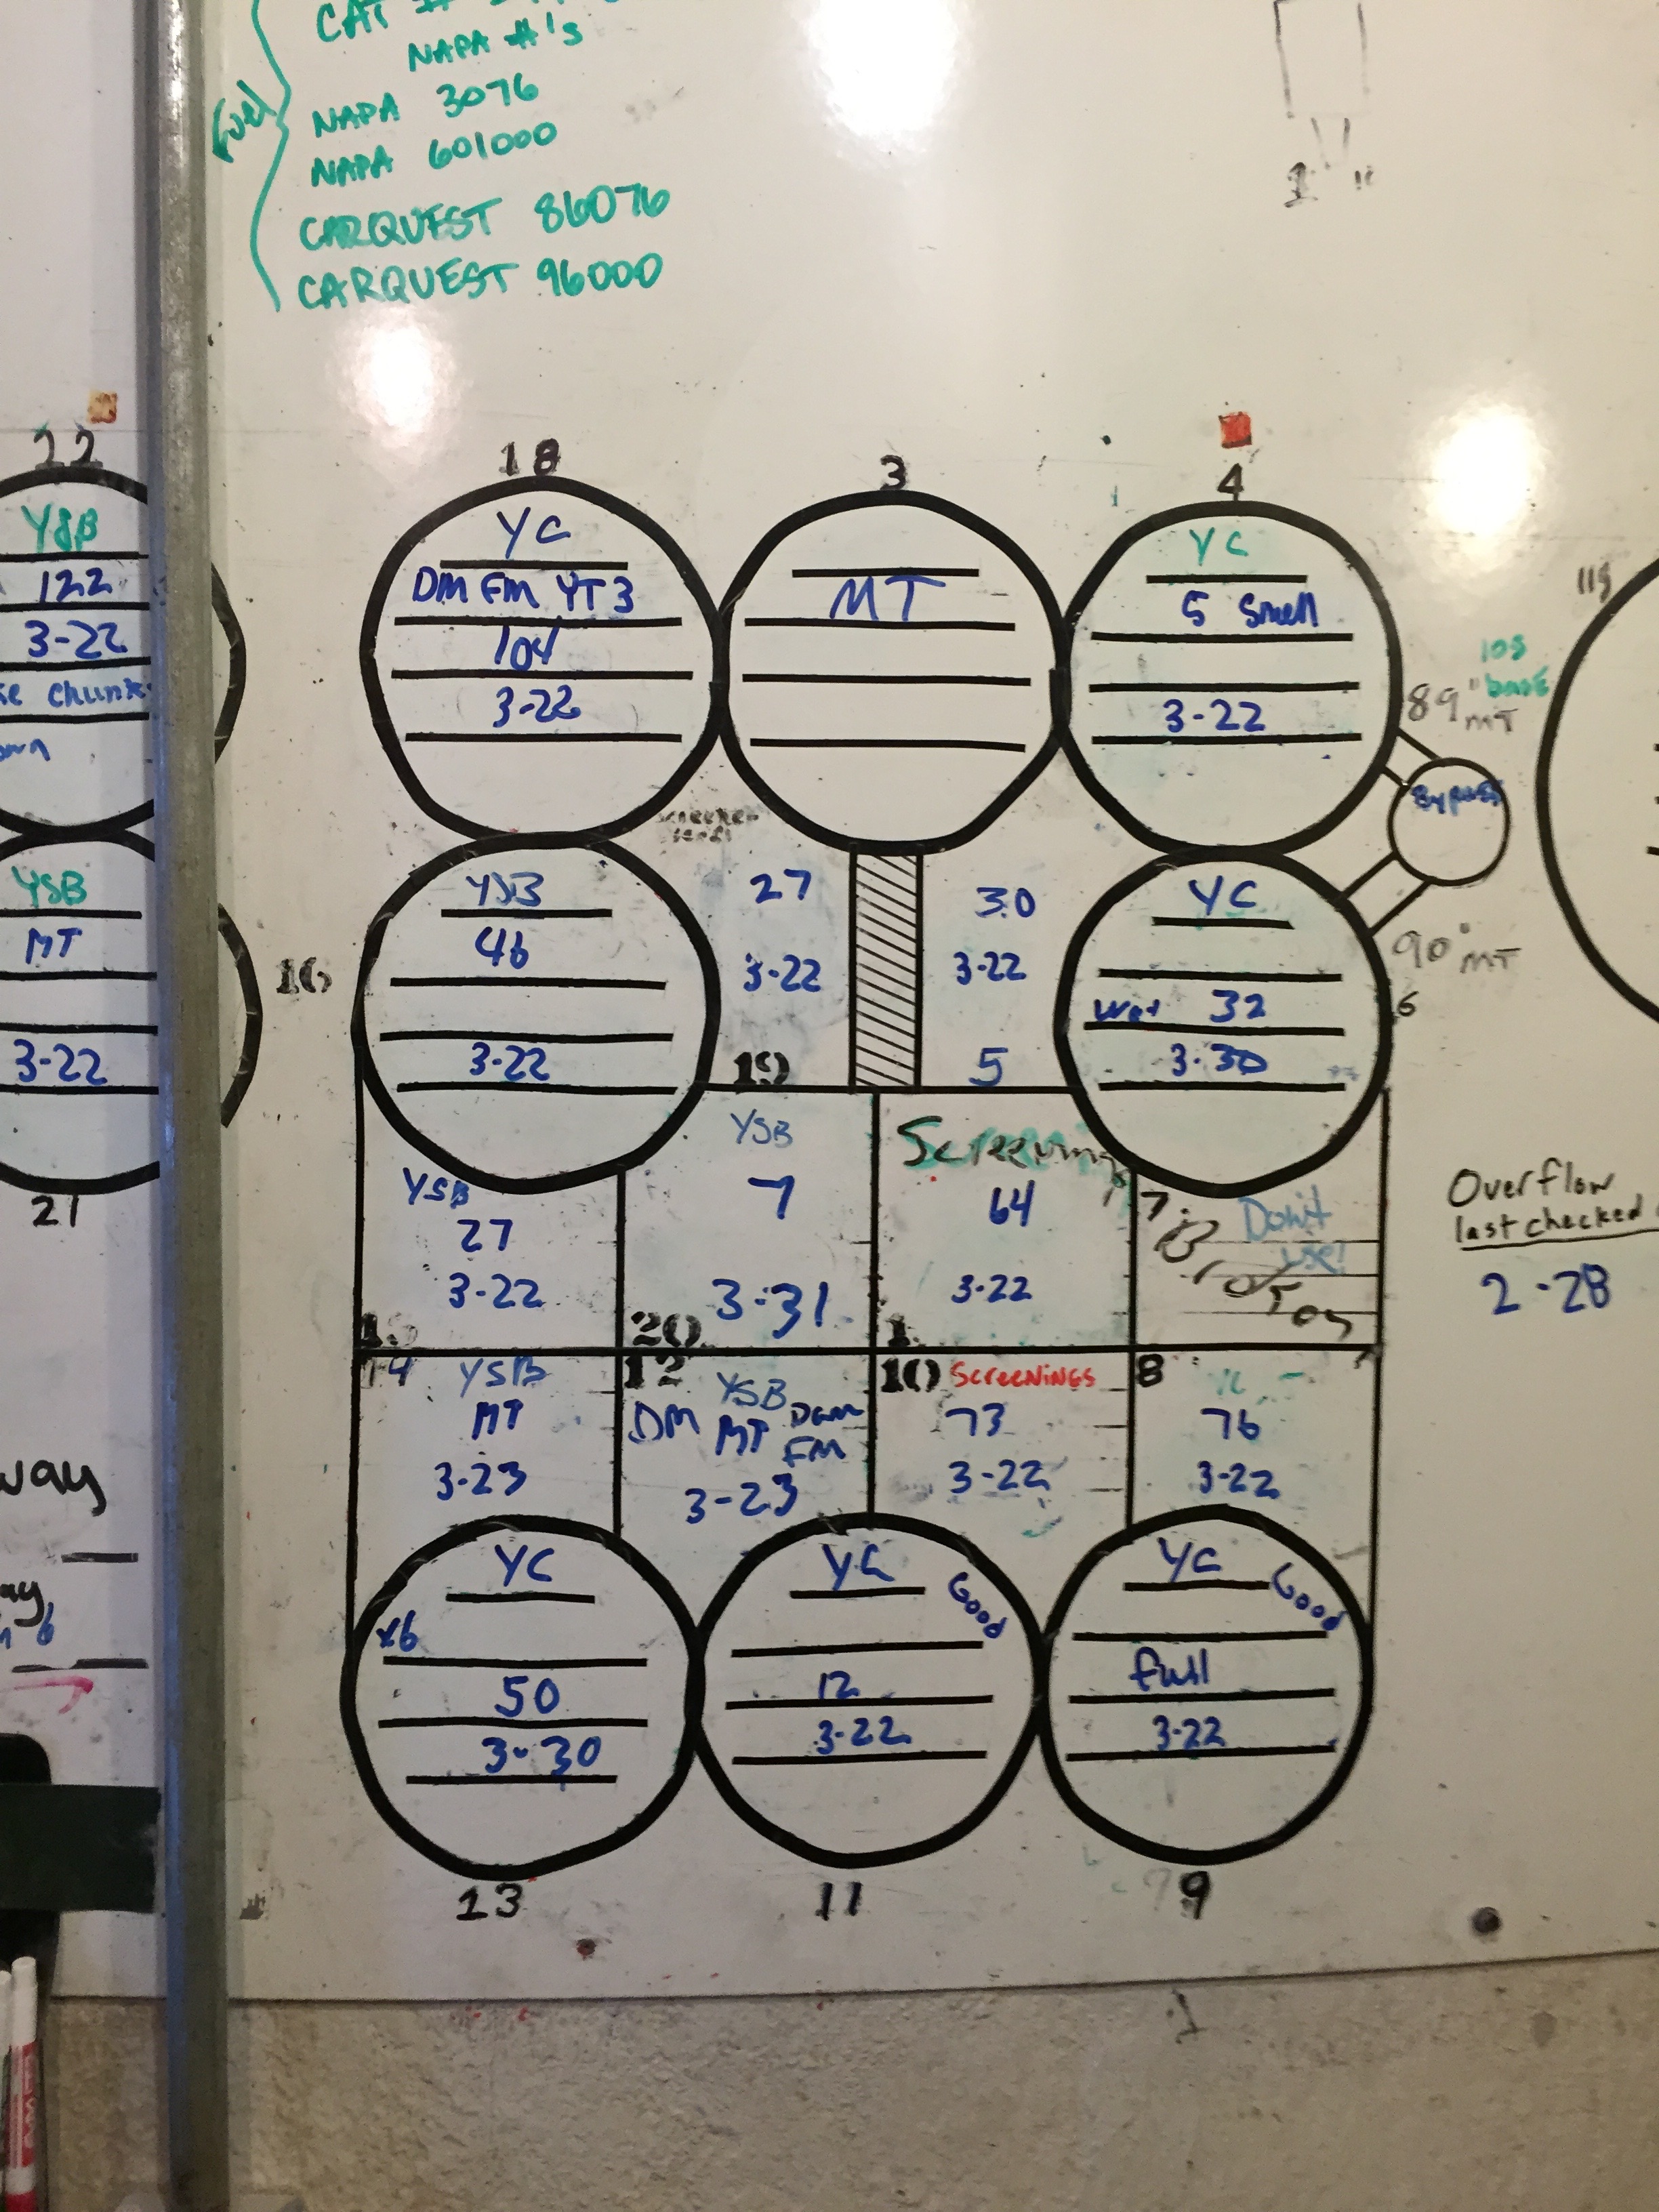 CAT #
NAPA #'s
NAPA 3076
NAPA 601000
CARQUEST 86076
CARQUEST 96000
fuel
1"
22
YSB
122
3-22
chunks
YSB
MT
3-22
21
18
YC
DM FM YT3
104
3-22
3
MT
4
YC
5 Smell
3-22
89" MT
108
base
Bypass
90" MT
119
16
YSB
46
3-22
27
3-22
19
30
3-22
5
YC
Wet 32
3-30
6
YSB
27
3-22
15
YSB
7
3-31
20
Screening
64
3-22
1
7
Don't
use!
Overflow
last checked
2-28
14
YSB
MT
3-23
12
YSB
DM MT Dam
FM
3-23
10 Screenings
73
3-22
8
76
3-22
YC
x6
50
3-30
13
YC
Good
12
3-22
11
YC
Good
full
3-22
9
way